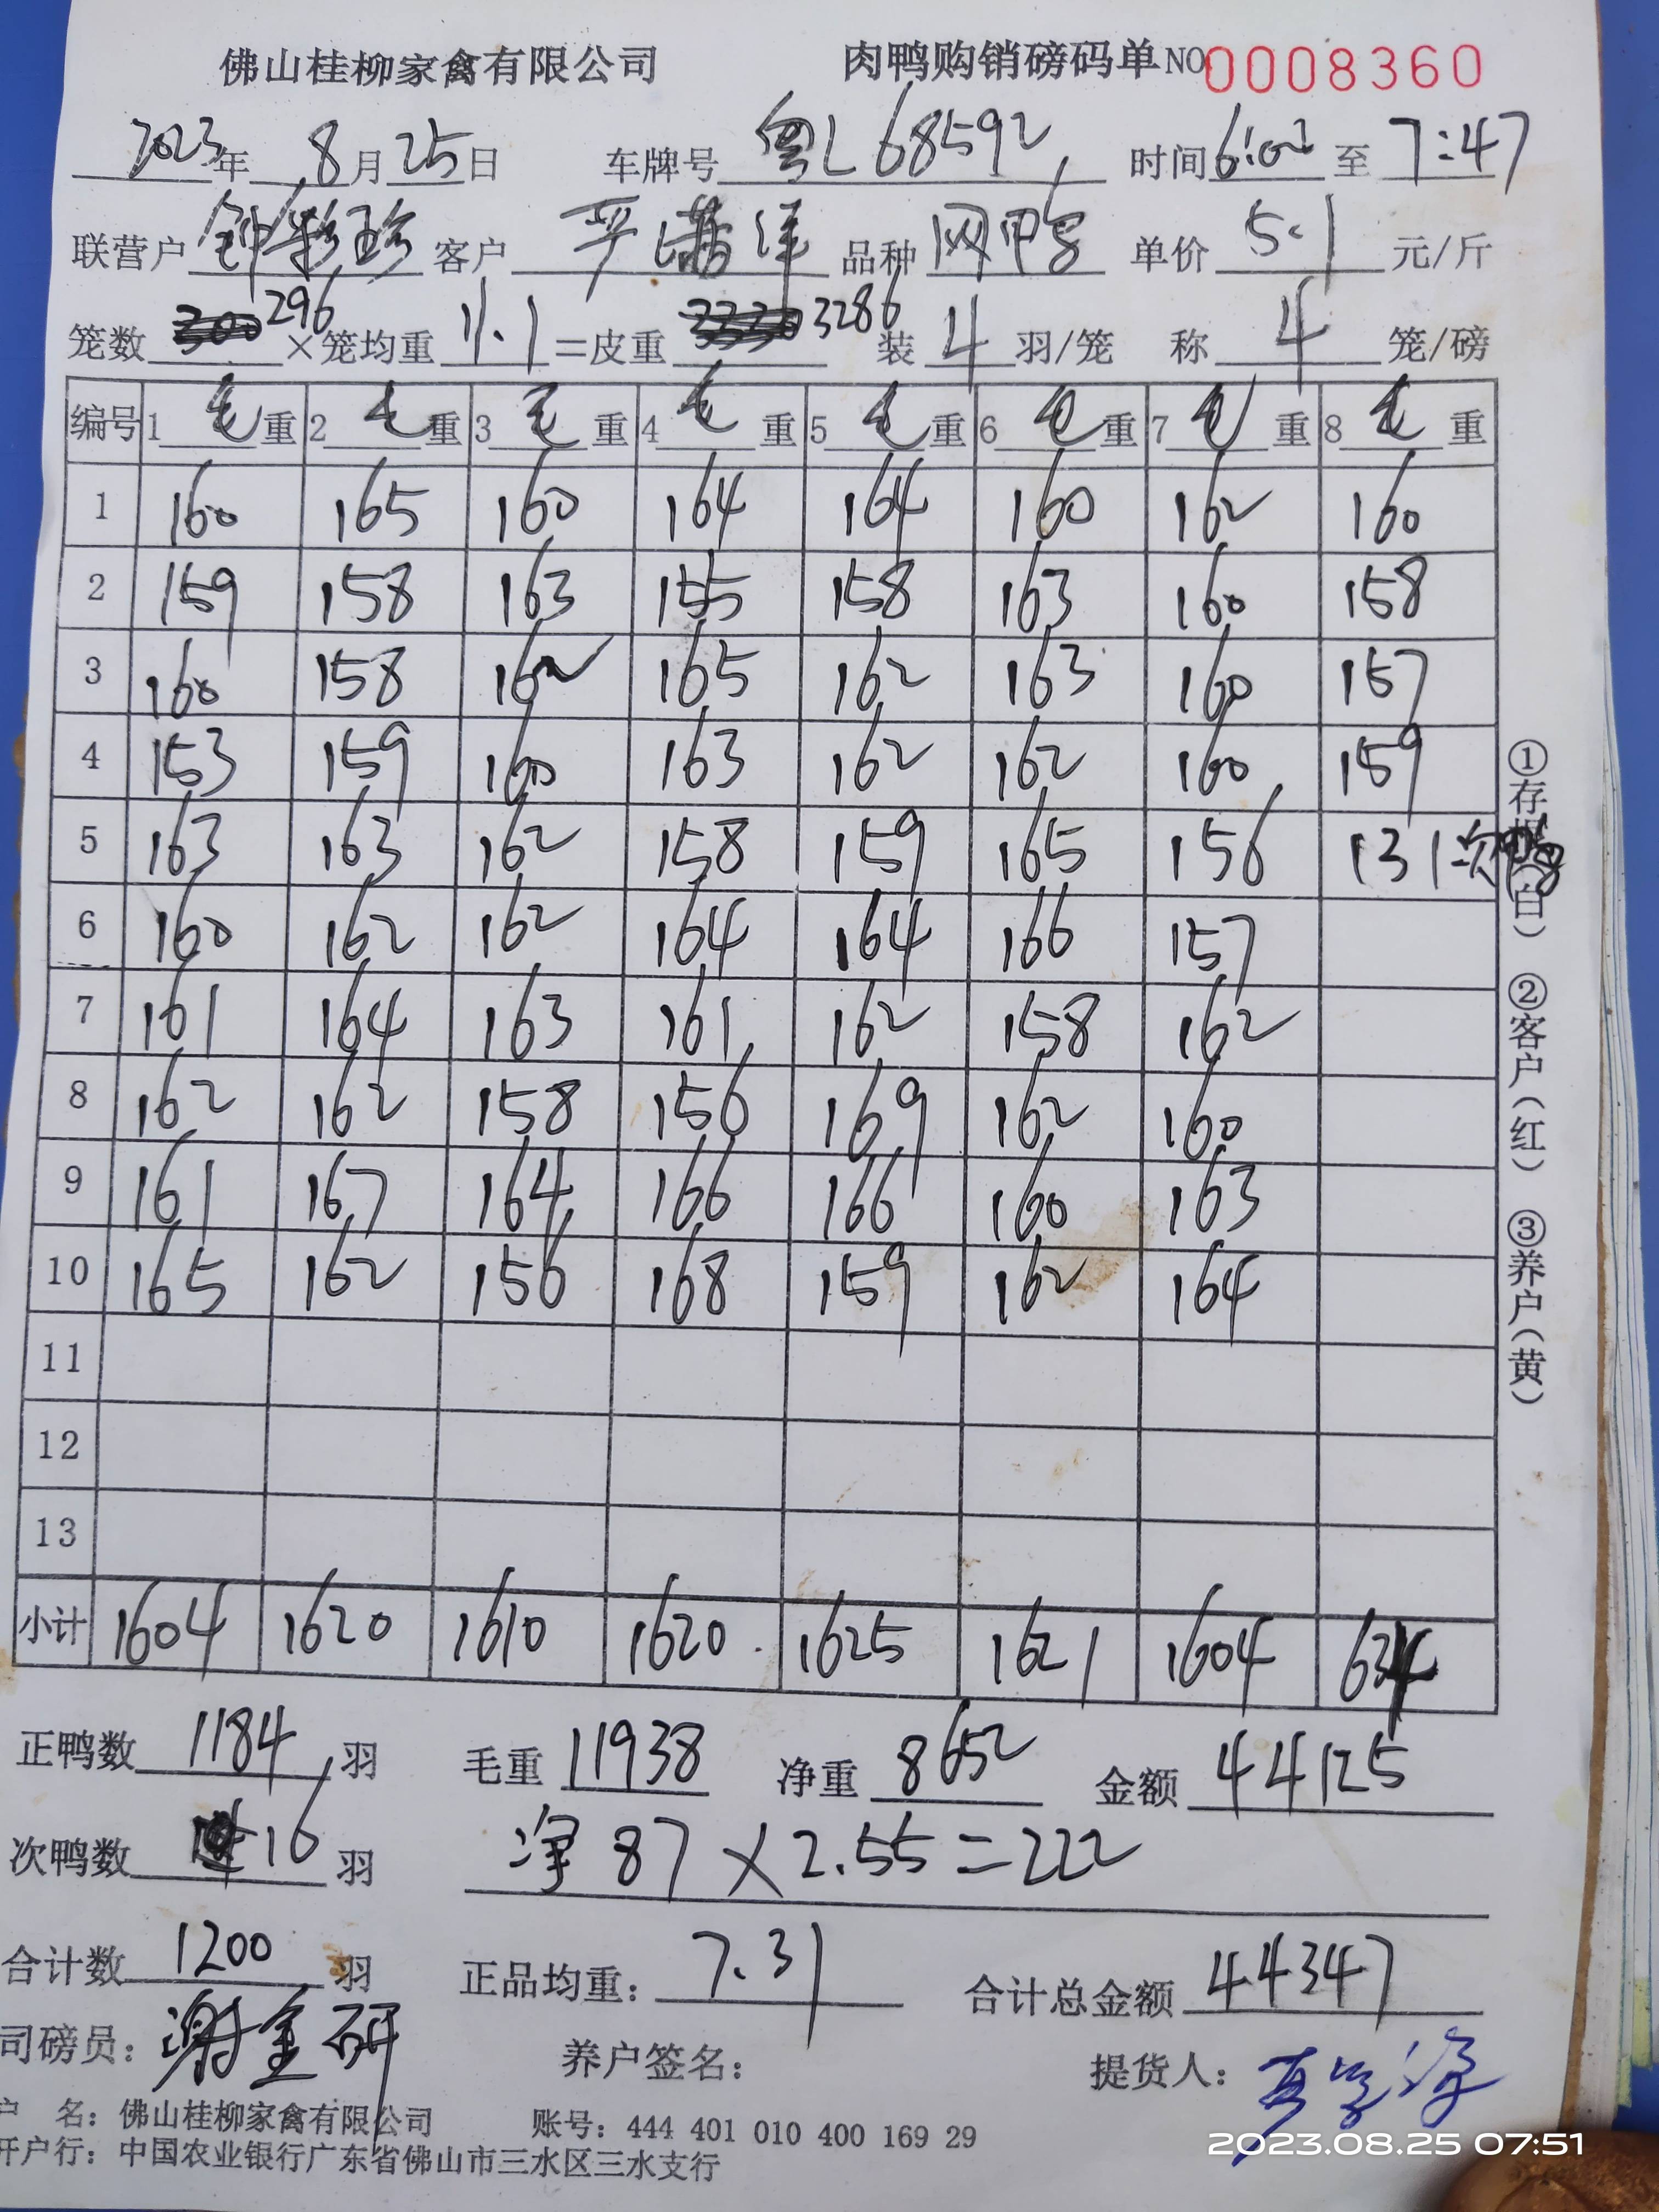 佛山桂柳家禽有限公司 肉鸭购销磅码单 NO 0008360
2023年 8月25日 车牌号 粤L68592 时间 6:02 至 7:47
联营户 钟彩珍 客户 严 洋 品种 网鸭 单价 5.1 元/斤
笼数 296 ×笼均重 11.1 =皮重 3286 装 4 羽/笼 称 4 笼/磅
编号 1毛重 2毛重 3毛重 4毛重 5毛重 6毛重 7毛重 8毛重
1 160 165 160 164 164 160 162 160
2 159 158 163 155 158 163 160 158
3 160 158 162 165 162 163 160 157
4 153 159 160 163 162 162 160 159
5 163 163 162 158 159 165 156 131次鸭
6 160 162 162 164 164 166 157
7 161 164 163 161 162 158 162
8 162 162 158 156 169 162 160
9 161 167 164 166 166 160 163
10 165 162 156 168 159 162 164
11
12
13
小计 1604 1620 1610 1620 1625 1621 1604 634
①存根(白) ②客户(红) ③养户(黄)
正鸭数 1184 羽 毛重 11938 净重 8652 金额 44125
次鸭数 16 羽 净 87×2.55=222
合计数 1200 羽 正品均重: 7.31 合计总金额 44347
司磅员: 谢金研 养户签名: 提货人:
户 名: 佛山桂柳家禽有限公司 账号: 444 401 010 400 169 29
开户行: 中国农业银行广东省佛山市三水区三水支行
2023.08.25 07:51